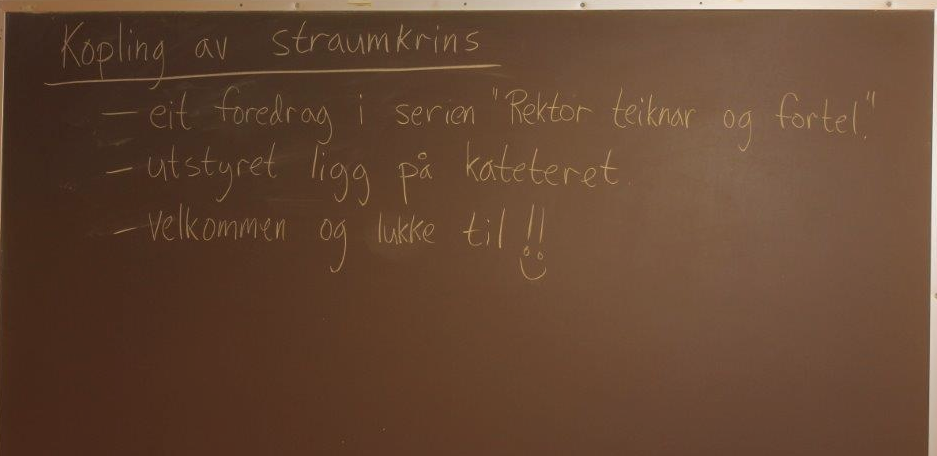 Kopling av straumkrins
– eit foredrag i serien "Rektor teiknar og fortel."
– utstyret ligg på kateteret.
– velkommen og lukke til !!